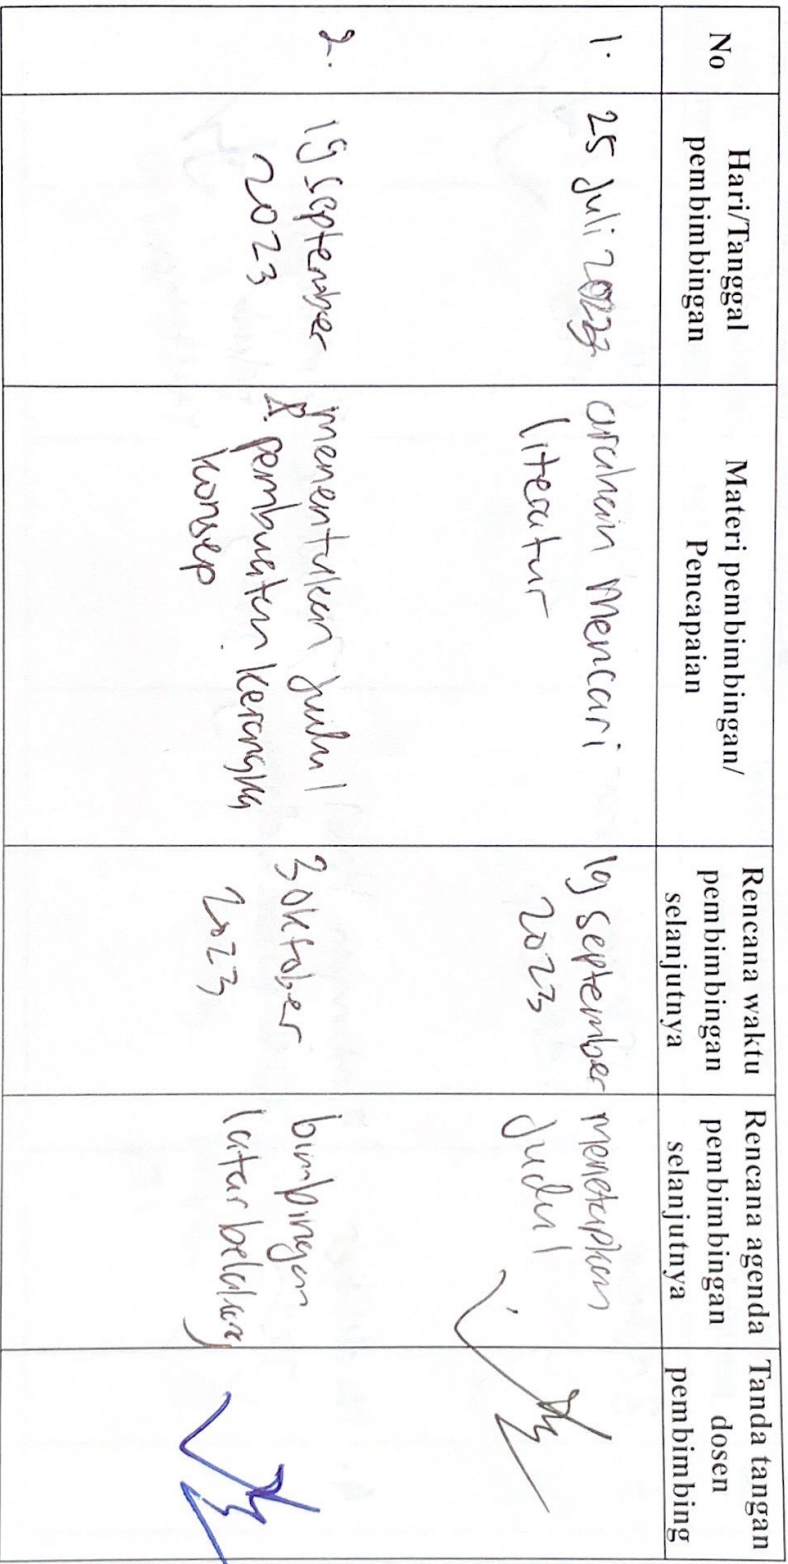 No
Hari/Tanggal
pembimbingan
Materi pembimbingan/
Pencapaian
Rencana waktu
pembimbingan
selanjutnya
Rencana agenda
pembimbingan
selanjutnya
Tanda tangan
dosen
pembimbing
1.
25 Juli 2023
arahan mencari
literatur
19 september
2023
menetapkan
Judul
2.
19 september
2023
menentukan judul
& pembuatan kerangka
konsep
3 oktober
2023
bimbingan
latar belakang